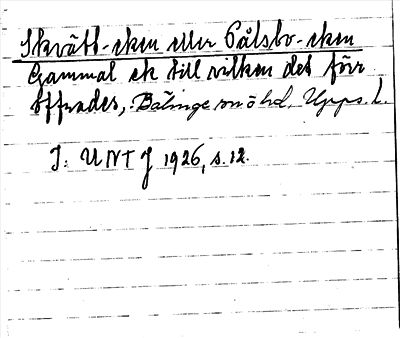 Skvätt-eken eller Pålsbo-eken
Gammal ek till vilken det förr
offrades, Bälinge sn o hd, Upps. l.
J. UNT J 1926, s. 12.